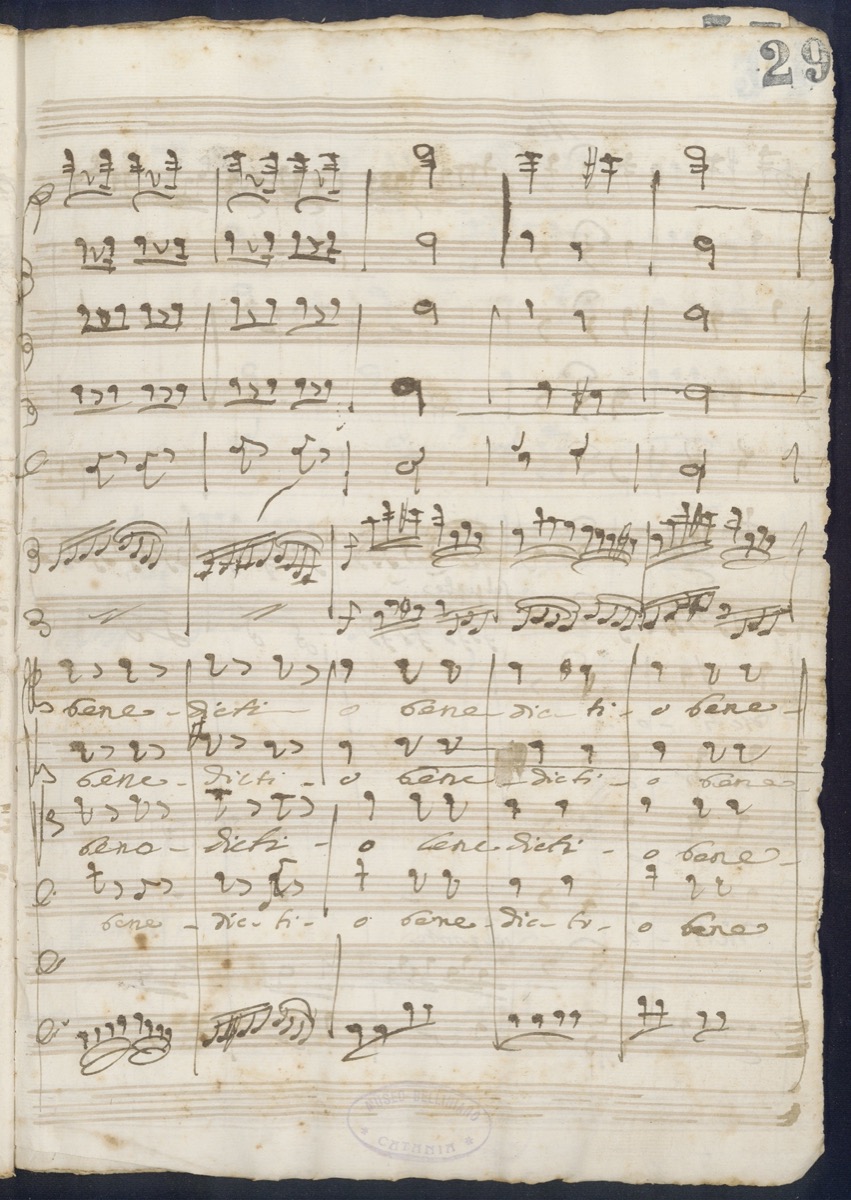 29
f
f
bene - dicti - o bene - dic - ti - o bene -
bene - dicti - o bene - dicti - o bene -
bene - dicti - o bene - dicti - o bene -
bene - dic - ti - o bene - dic - ti - o bene
MUSEO BELLINIANO
CATANIA